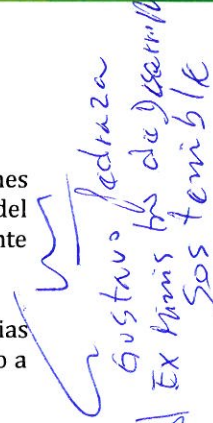 nes
del
nte
ias
o a
Gustavo Pedraza
Ex Minis tro de Desarroll
Sos tenible